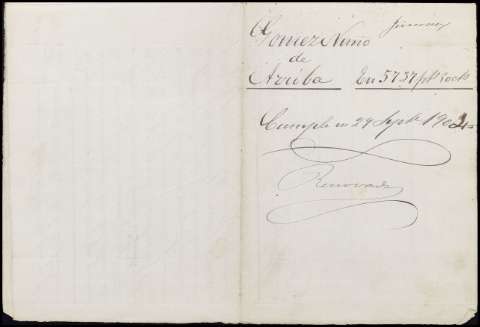 Gomez Nuño
de
Azuba En 5737
Cumple en 29 Sepbe 1902
Renovada